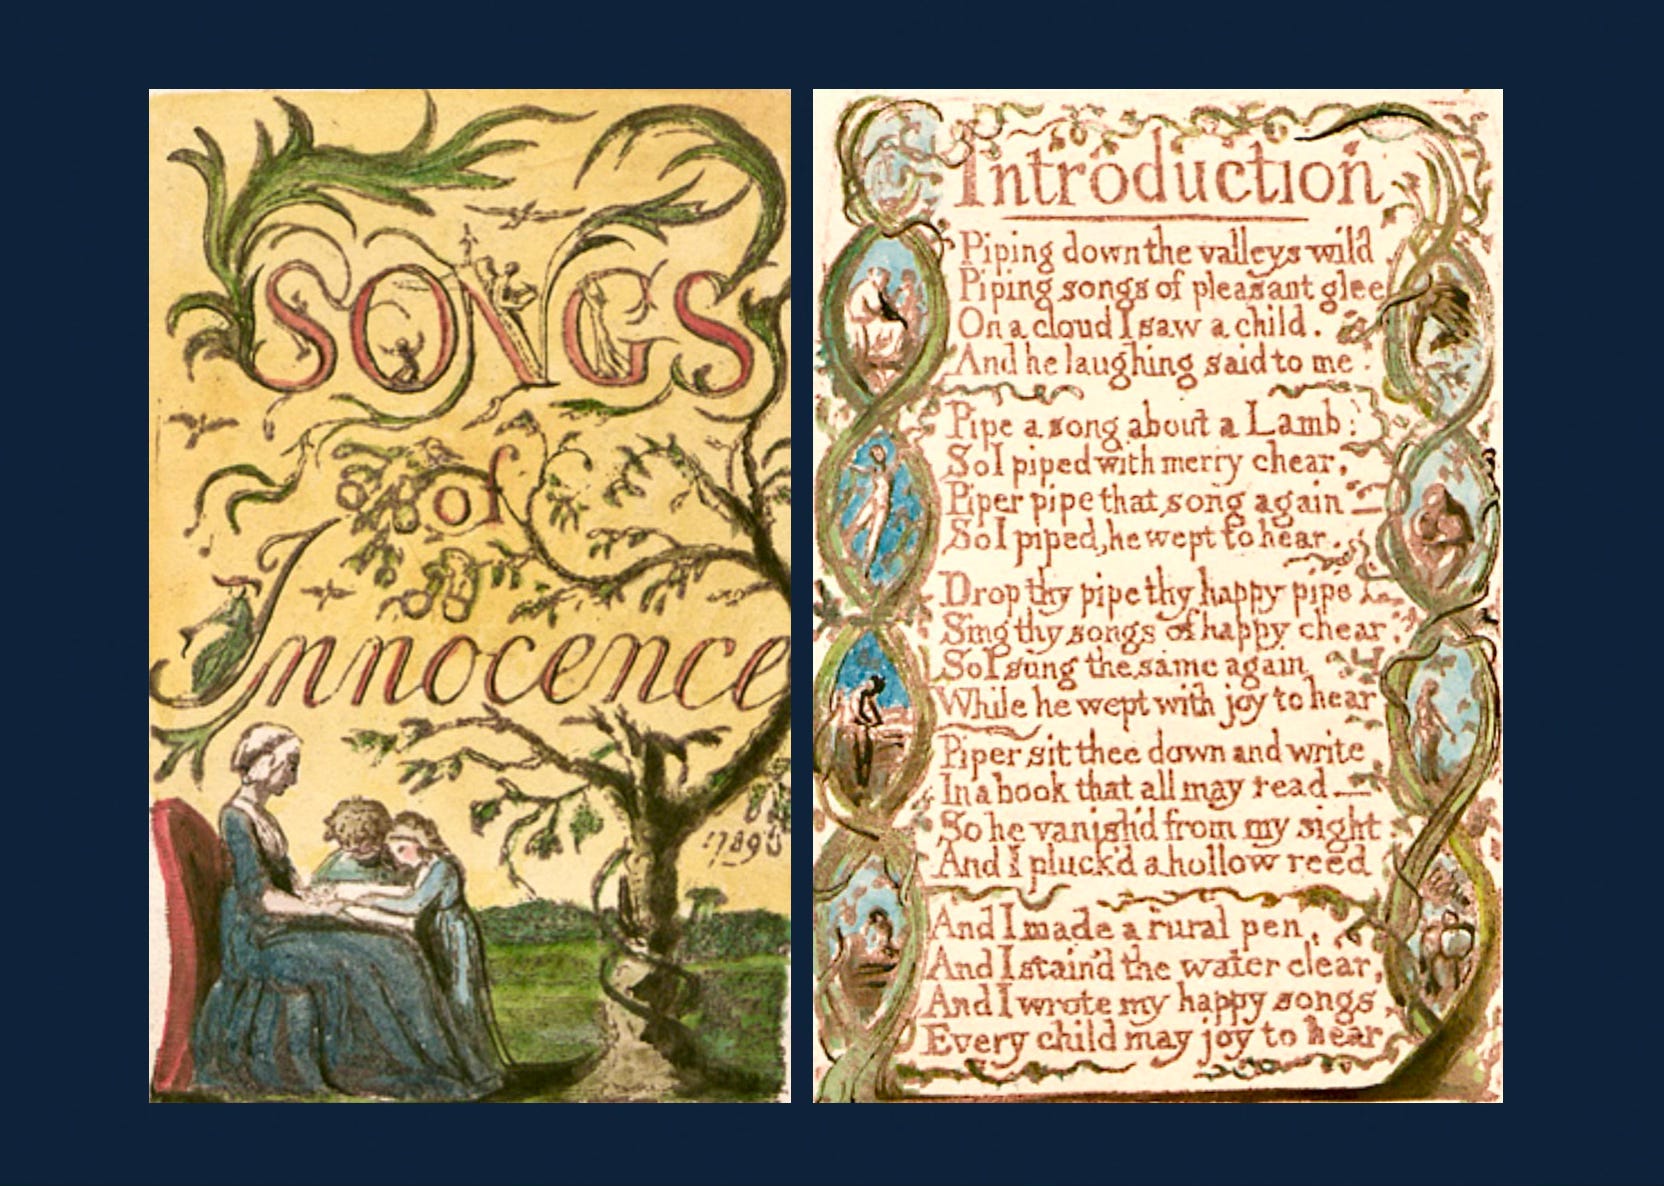 SONGS
of
Innocence
1789
Introduction
Piping down the valleys wild
Piping songs of pleasant glee
On a cloud I saw a child.
And he laughing said to me.
Pipe a song about a Lamb:
So I piped with merry chear,
Piper pipe that song again—
So I piped, he wept to hear.
Drop thy pipe thy happy pipe
Sing thy songs of happy chear,
So I sung the same again
While he wept with joy to hear
Piper sit thee down and write
In a book that all may read—
So he vanish'd from my sight
And I pluck'd a hollow reed
And I made a rural pen,
And I stain'd the water clear,
And I wrote my happy songs
Every child may joy to hear